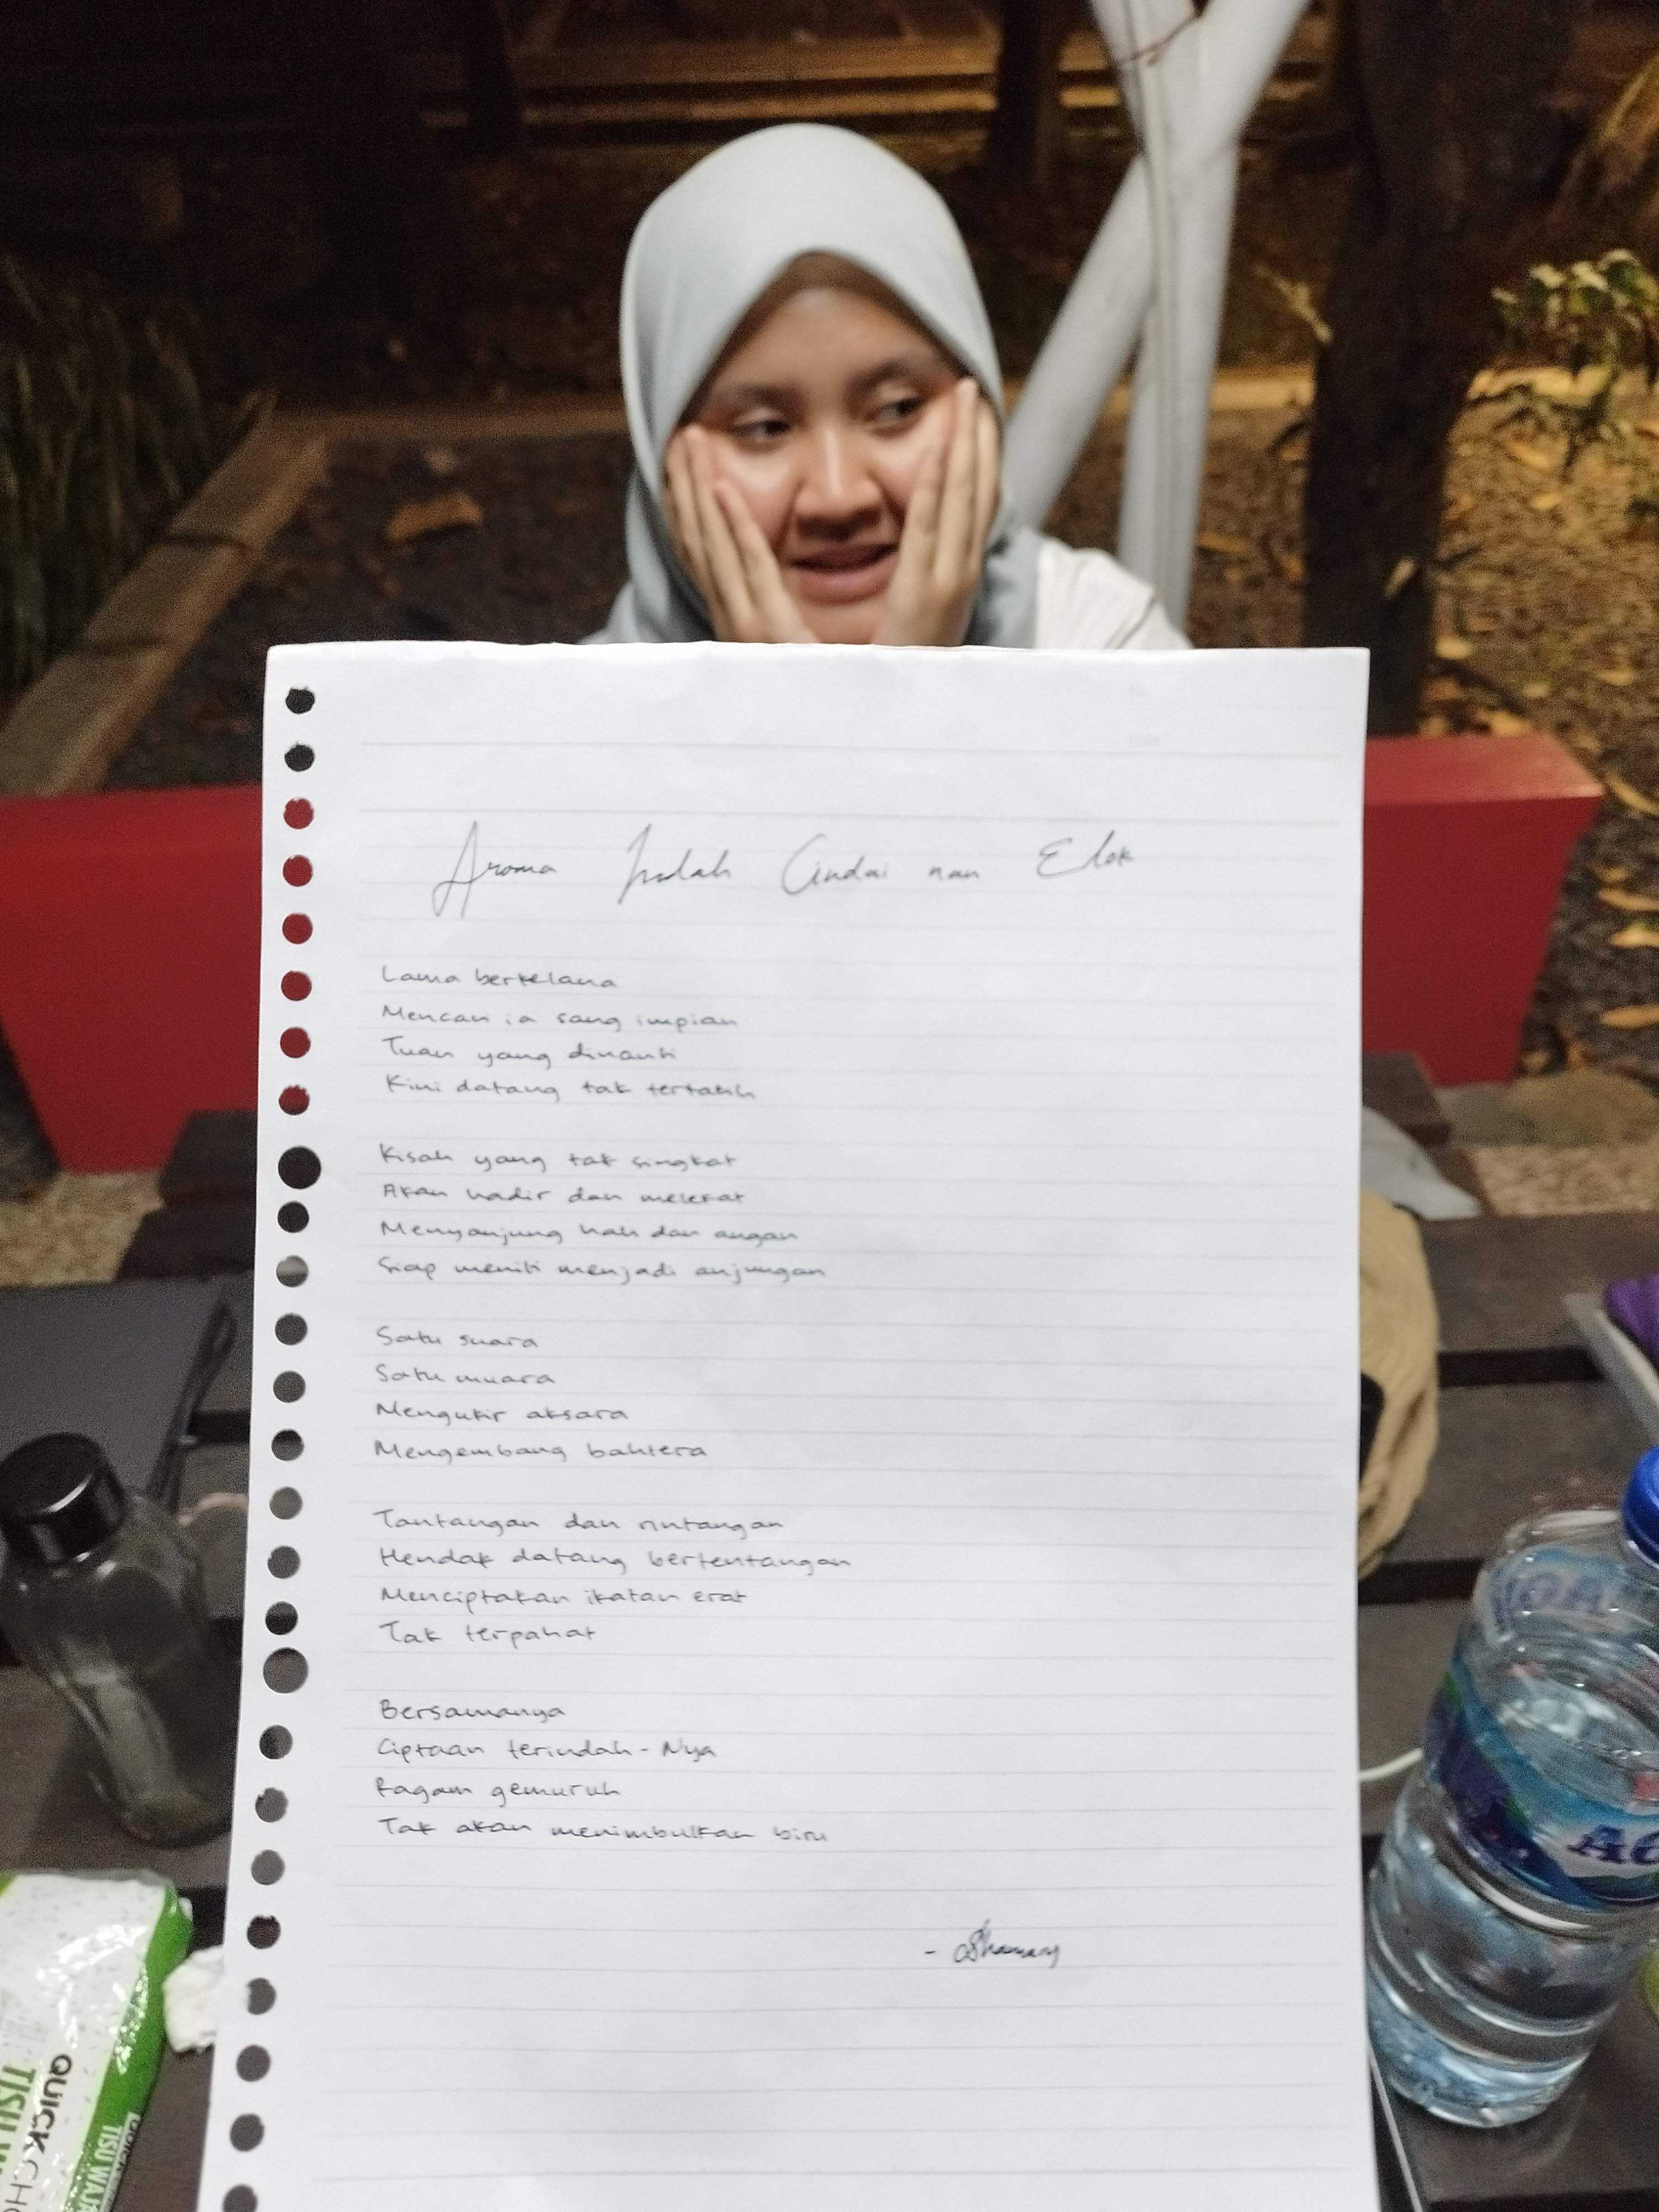 Aroma Indah Cindai nan Elok
Lama berkelana
Mencari ia sang impian
Tuan yang dinanti
Kini datang tak tertatih
Kisah yang tak singkat
Akan hadir dan melekat
Menyanjung hati dan angan
Siap meniti menjadi anjungan
Satu suara
Satu muara
Mengukir aksara
Mengembang bahtera
Tantangan dan rintangan
Hendak datang bertentangan
Menciptakan ikatan erat
Tak terpahat
Bersamanya
Ciptaan terindah-Nya
Ragam gemuruh
Tak akan menimbulkan biru
QUICK
TISU
TISU WAJA